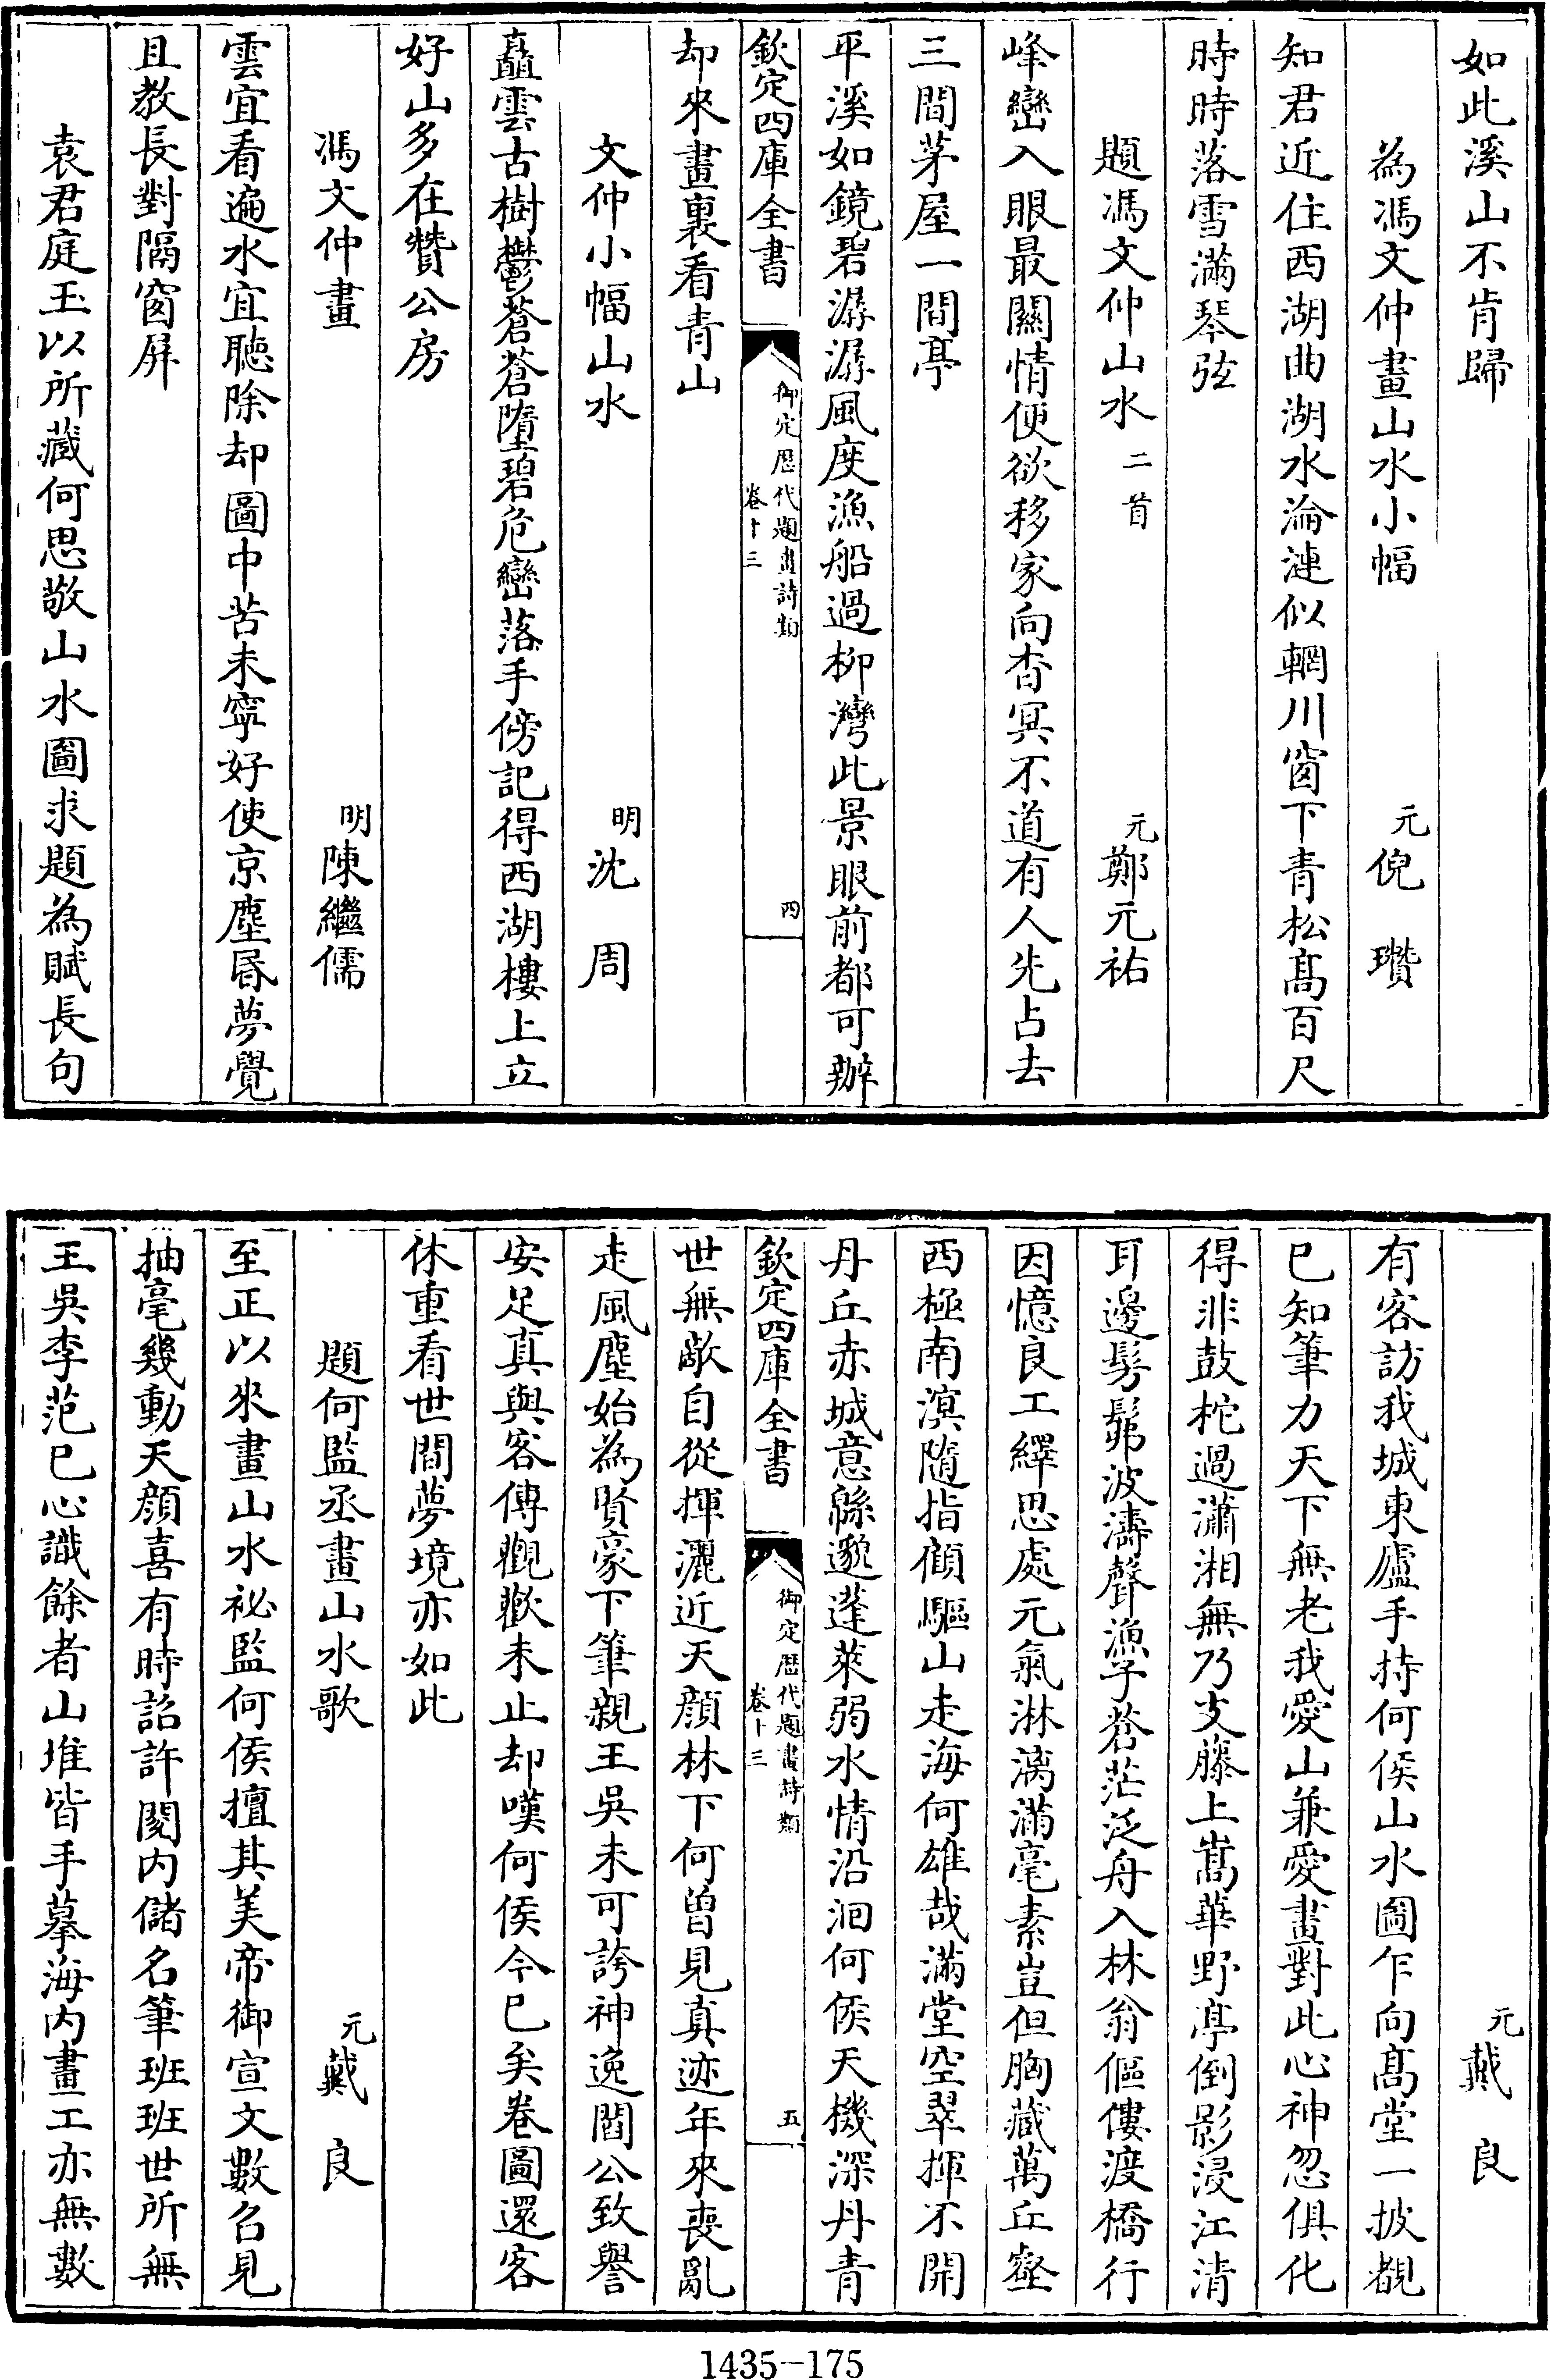 如此溪山不肯歸
為馮文仲畫山水小幅 元倪 瓚
知君近住西湖曲湖水淪漣似輞川窗下青松髙百尺
時時落雪滿琴弦
題馮文仲山水二首 元鄭元祐
峰巒入眼最闗情便欲移家向杳冥不道有人先占去
三間茅屋一間亭
平溪如鏡碧潺潺風度漁船過柳灣此景眼前都可辦
欽定四庫全書
御定歴代題畫詩類
卷十三
四
却來畫裏看青山
文仲小幅山水 明沈 周
矗雲古樹鬱蒼蒼墮碧危巒落手傍記得西湖樓上立
好山多在贊公房
馮文仲畫 明陳繼儒
雲宜看遍水宜聽除却圖中苦未寧好使京塵昏夢覺
且教長對隔窗屏
袁君庭玉以所藏何思敬山水圖求題為賦長句
元戴 良
有客訪我城東廬手持何侯山水圖乍向髙堂一披覩
已知筆力天下無老我愛山兼愛畫對此心神忽俱化
得非鼓柁過瀟湘無乃支藤上嵩華野亭倒影浸江清
耳邊髣髴波濤聲漁子蒼茫泛舟入林翁傴僂渡橋行
因憶良工繹思處元氣淋漓滿毫素豈但胸藏萬丘壑
西極南溟隨指顧驅山走海何雄哉滿堂空翠揮不開
丹丘赤城意緜邈蓬萊弱水情沿洄何侯天機深丹青
欽定四庫全書
御定歴代題畫詩類
卷十三
五
世無敵自從揮灑近天顔林下何曾見真迹年來喪亂
走風塵始為賢豪下筆親王吳未可誇神逸閻公致譽
安足真與客傳觀歡未止却嘆何侯今已矣卷圖還客
休重看世間夢境亦如此
題何監丞畫山水歌 元戴 良
至正以來畫山水祕監何侯擅其美帝御宣文數召見
抽毫幾動天顔喜有時詔許閱内儲名筆班班世所無
王吳李范已心識餘者山堆皆手摹海内畫工亦無數
1435-175